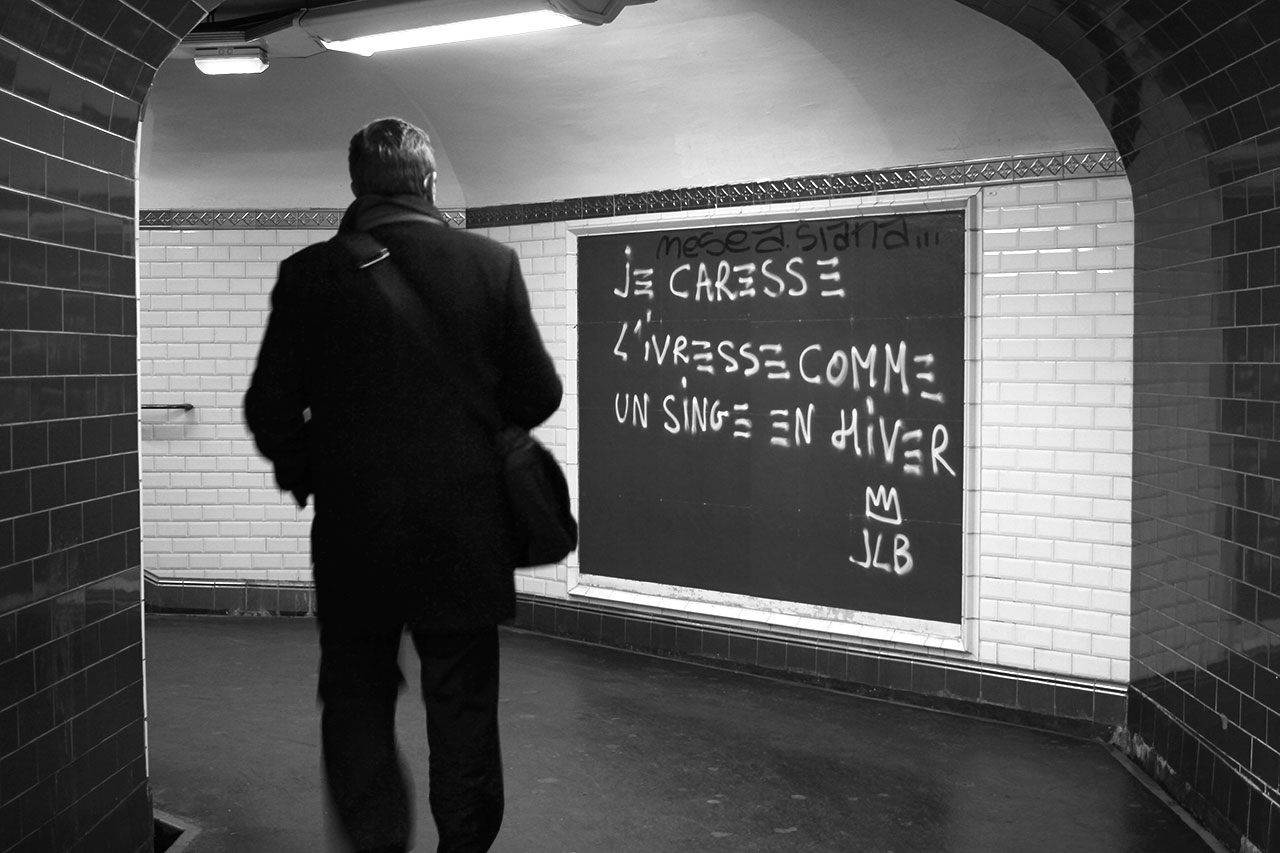 mesea.siana...
JE CARESSE
L'IVRESSE COMME
UN SINGE EN HIVER
JLB